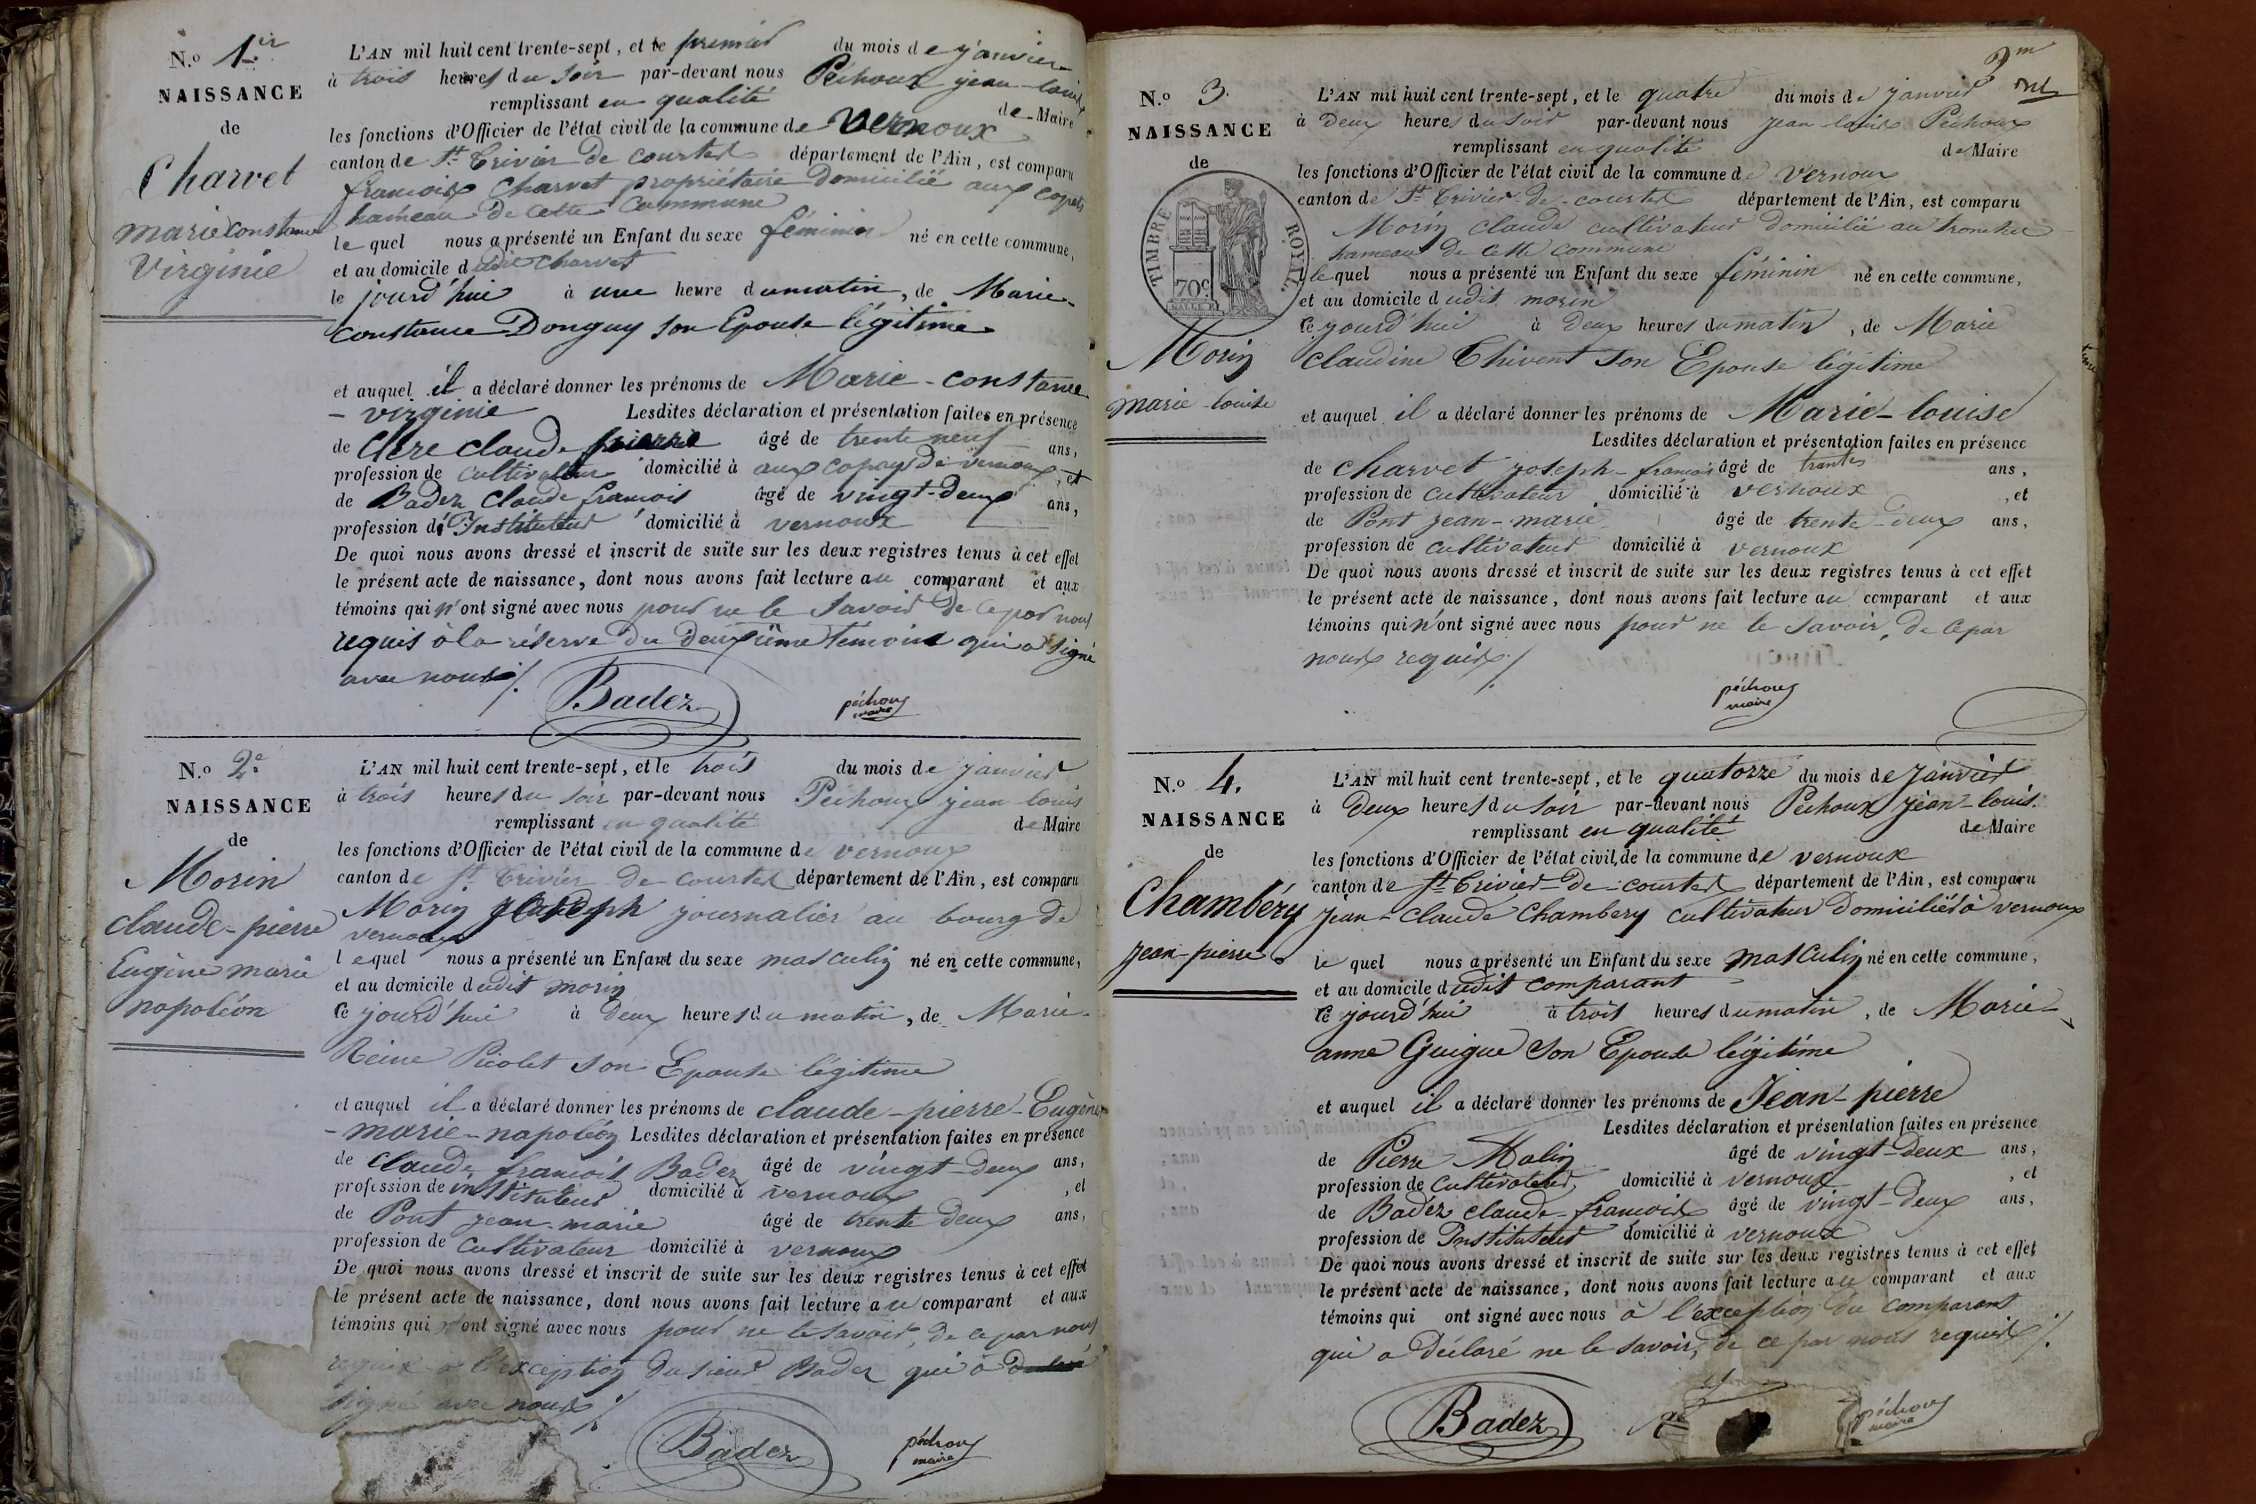 N.o 1.er
NAISSANCE
de
Charvet
marie constance
Virginie
L'AN mil huit cent trente-sept, et le premier du mois de janvier
à trois heures du soir par-devant nous Péchoux jean-louis
remplissant en qualité de Maire
les fonctions d'Officier de l'état civil de la commune de Vernoux
canton de St. Trivier de courtes département de l'Ain, est comparu
francois Charvet propriétaire domicilié aux
hameau de cette commune
le quel nous a présenté un Enfant du sexe féminin né en cette commune,
et au domicile dudit Charvet
le jourd'hui à une heure du matin, de Marie-
constance Donguy son Epouse légitime
et auquel il a déclaré donner les prénoms de Marie-constance
-virginie Lesdites déclaration et présentation faites en présence
de Clere claude pierre âgé de trente neuf ans,
profession de cultivateur domicilié à aux de vernoux, et
de Badez Claude francois âgé de vingt-deux ans,
profession d'Instituteur domicilié à vernoux
De quoi nous avons dressé et inscrit de suite sur les deux registres tenus à cet effet
le présent acte de naissance, dont nous avons fait lecture au comparant et aux
témoins qui n'ont signé avec nous pour ne le savoir de ce par nous
requis à la réserve du deuxième témoin qui a signé
avec nous /.
Badez
péchoux
maire
N.o 2.e
NAISSANCE
de
Morin
claude-pierre
Eugène marie
napoléon
L'AN mil huit cent trente-sept, et le trois du mois de janvier
à trois heures du soir par-devant nous Péchoux jean louis
remplissant en qualité de Maire
les fonctions d'Officier de l'état civil de la commune de vernoux
canton de St. Trivier de courtes département de l'Ain, est comparu
Morin joseph journalier au bourg de
vernoux
lequel nous a présenté un Enfant du sexe masculin né en cette commune,
et au domicile dudit morin
le jourd'hui à deux heures du matin, de Marie-
Reine Picolet son Epouse légitime
et auquel il a déclaré donner les prénoms de claude-pierre-Eugène
-marie-napoléon Lesdites déclaration et présentation faites en présence
de claude francois Badez âgé de vingt-deux ans,
profession de instituteur domicilié à vernoux, et
de Pont jean-marie âgé de trente deux ans,
profession de cultivateur domicilié à vernoux
De quoi nous avons dressé et inscrit de suite sur les deux registres tenus à cet effet
le présent acte de naissance, dont nous avons fait lecture au comparant et aux
témoins qui n'ont signé avec nous pour ne le savoir, de ce par nous
requis a l'exception du sieur Badez qui a
signé avec nous /.
Badez
péchoux
maire
N.o 3.
NAISSANCE
de
TIMBRE ROYAL
70c
Morin
marie-louise
L'AN mil huit cent trente-sept, et le quatre du mois de janvier
à Deux heures du soir par-devant nous jean-louis Péchoux
remplissant en qualité de Maire
les fonctions d'Officier de l'état civil de la commune de vernoux
canton de St. Trivier-de-courtes département de l'Ain, est comparu
Morin claude cultivateur domicilié au
hameau de cette commune
le quel nous a présenté un Enfant du sexe féminin né en cette commune,
et au domicile dudit morin
le jourd'hui à deux heures du matin, de Marie
claudine Thivent son Epouse légitime
et auquel il a déclaré donner les prénoms de Marie-louise
Lesdites déclaration et présentation faites en présence
de charvet joseph-francois âgé de trente ans,
profession de cultivateur domicilié à vernoux, et
de Pont jean-marie âgé de trente-deux ans,
profession de cultivateur domicilié à vernoux
De quoi nous avons dressé et inscrit de suite sur les deux registres tenus à cet effet
le présent acte de naissance, dont nous avons fait lecture au comparant et aux
témoins qui n'ont signé avec nous pour ne le savoir, de ce par
nous requis /.
péchoux
maire
N.o 4.
NAISSANCE
de
Chambéry
jean-pierre
L'AN mil huit cent trente-sept, et le quatorze du mois de janvier
à Deux heures du soir par-devant nous Péchoux jean-louis
remplissant en qualité de Maire
les fonctions d'Officier de l'état civil, de la commune de vernoux
canton de St. Trivier-de-courtes département de l'Ain, est comparu
jean-claude Chambery cultivateur domicilié à vernoux
le quel nous a présenté un Enfant du sexe masculin né en cette commune,
et au domicile dudit comparant
le jourd'hui à trois heures du matin, de Marie-
anne Guigue son Epouse légitime
et auquel il a déclaré donner les prénoms de Jean-pierre
Lesdites déclaration et présentation faites en présence
de Pierre Malin âgé de vingt-deux ans,
profession de cultivateur domicilié à vernoux, et
de Badez claude-francois âgé de vingt-deux ans,
profession de Instituteur domicilié à vernoux
De quoi nous avons dressé et inscrit de suite sur les deux registres tenus à cet effet
le présent acte de naissance, dont nous avons fait lecture au comparant et aux
témoins qui ont signé avec nous à l'exception du comparant
qui a déclaré ne le savoir, de ce par nous requis /.
Badez
péchoux
maire